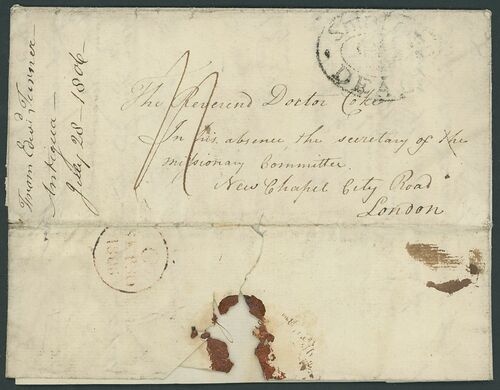 From Edwd Turner
Antigua
July 28 1806
SHIP
DEAL
The Reverend Doctor Coke
In his absence the secretary of the
missionary Committee
New Chapel City Road
London
SEP
1806